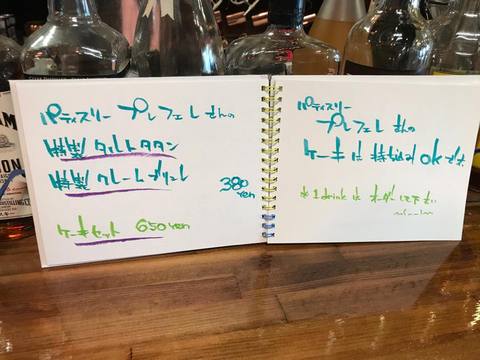 パティスリー プレフェレさんの
特製 タルトタタン
特製 クレームブリュレ
380
yen
ケーキセット 650yen
パティスリー
プレフェレ さんの
ケーキは 持ち込み okです。
※ 1 drink は オーダーして下さい